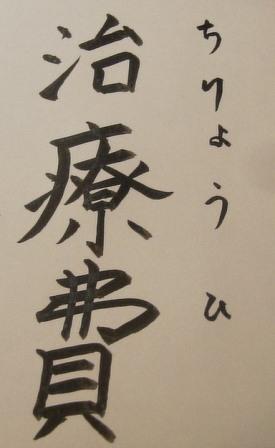 ちりょうひ
治療費